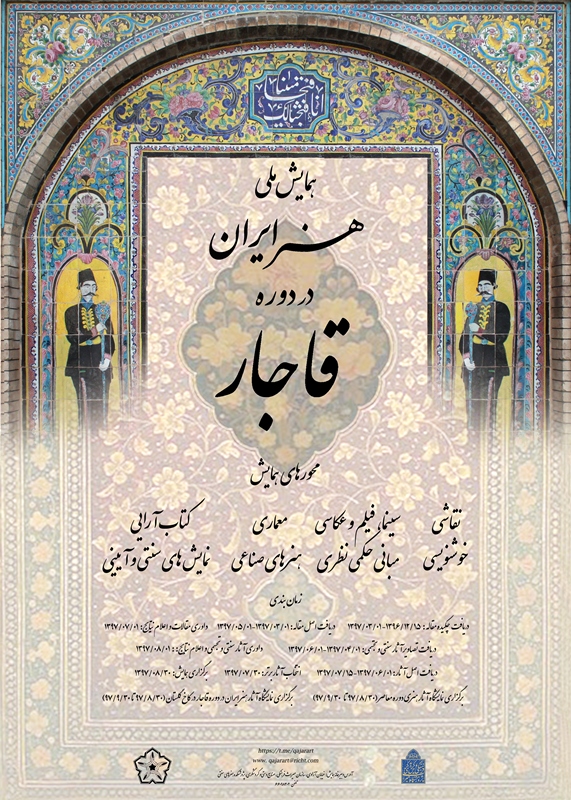 انا فتحنا لک
فتحا مبینا
همایش ملی
هنر ایران
در دوره
قاجار
محورهای همایش
نقاشی سینما، فیلم و عکاسی معماری کتاب‌آرایی
خوشنویسی مبانی حکمی نظری هنرهای صناعی نمایش های سنتی و آیینی
زمان بندی
دریافت چکیده مقاله: ۱۳۹۶/۱۲/۱۵-۱۳۹۷/۰۳/۰۱ دریافت اصل مقاله: ۱۳۹۷/۰۳/۰۱-۱۳۹۷/۰۵/۰۱ داوری مقالات و اعلام نتایج: ۱۳۹۷/۰۷/۰۱
دریافت تصاویر آثار سنتی و تجسمی: ۱۳۹۷/۰۴/۰۱-۱۳۹۷/۰۶/۰۱ داوری آثار سنتی و تجسمی و اعلام نتایج: ۱۳۹۷/۰۸/۰۱
دریافت اصل آثار: ۱۳۹۷/۰۶/۰۱-۱۳۹۷/۰۷/۱۵ انتخاب آثار برتر: ۱۳۹۷/۰۷/۳۰ برگزاری همایش: ۱۳۹۷/۰۸/۳۰
برگزاری نمایشگاه آثار هنری دوره معاصر (۹۷/۸/۳۰ تا ۹۷/۹/۳۰) برگزاری نمایشگاه آثار هنر ایران در دوره قاجار در کاخ گلستان (۹۷/۸/۳۰ تا ۹۷/۹/۳۰)
https://t.me/qajarart
www. qajarart@richt.com